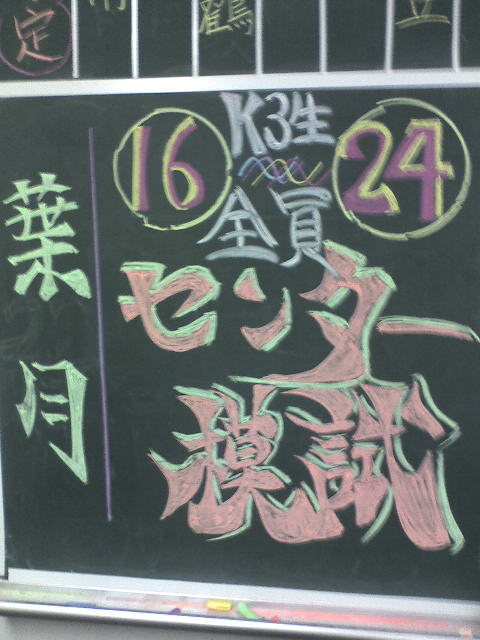 定
鶴
立
葉月
16
K3生
24
全員
センター
模試